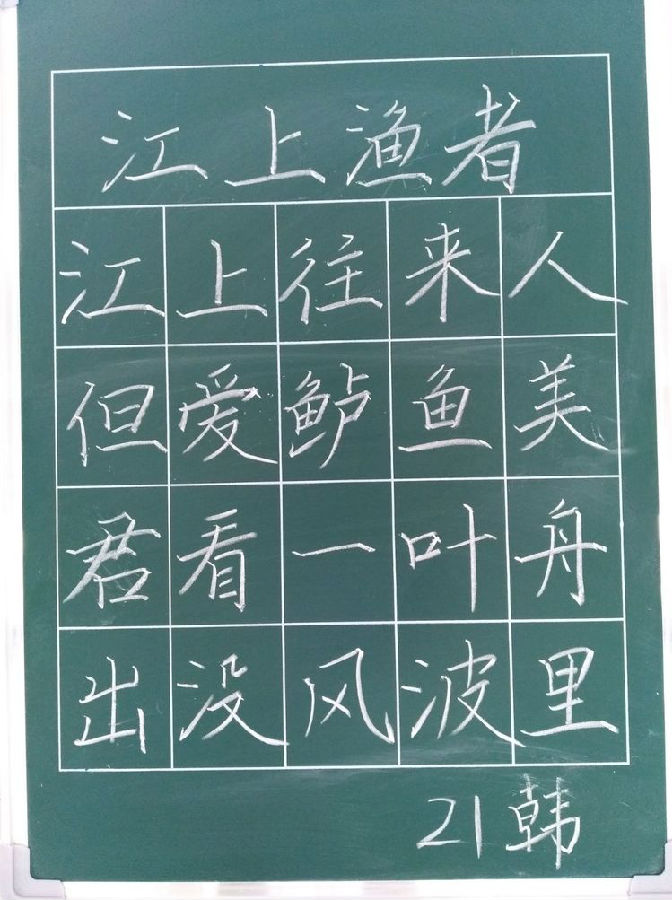 江上渔者
江上往来人
但爱鲈鱼美
君看一叶舟
出没风波里
21韩